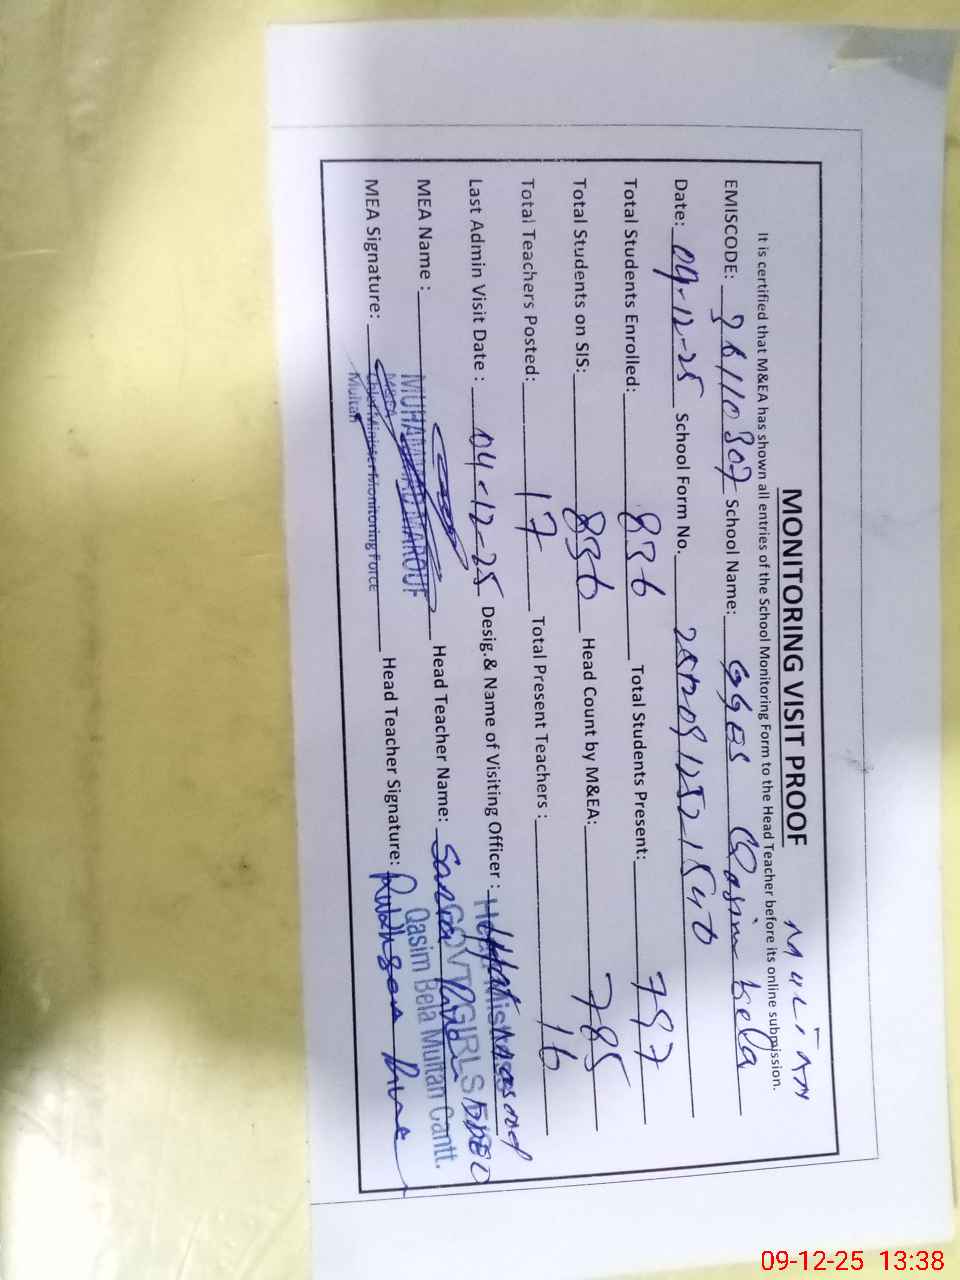 MONITORING VISIT PROOF MULTAN
It is certified that M&EA has shown all entries of the School Monitoring Form to the Head Teacher before its online submission.
EMISCODE: School Name: GGES Qasim bela
Date: 09-12-25 School Form No.
Total Students Enrolled: 836 Total Students Present: 797
Total Students on SIS: 836 Head Count by M&EA: 785
Total Teachers Posted: 17 Total Present Teachers : 16
Last Admin Visit Date : 04-12-25 Desig.& Name of Visiting Officer :
MEA Name : MUHAMMAD MAROUF Head Teacher Name:
GOVT GIRLS
Qasim Bela Multan Cantt.
MEA Signature: Head Teacher Signature:
Chief Minister Monitoring Force
Multan
09-12-25 13:38